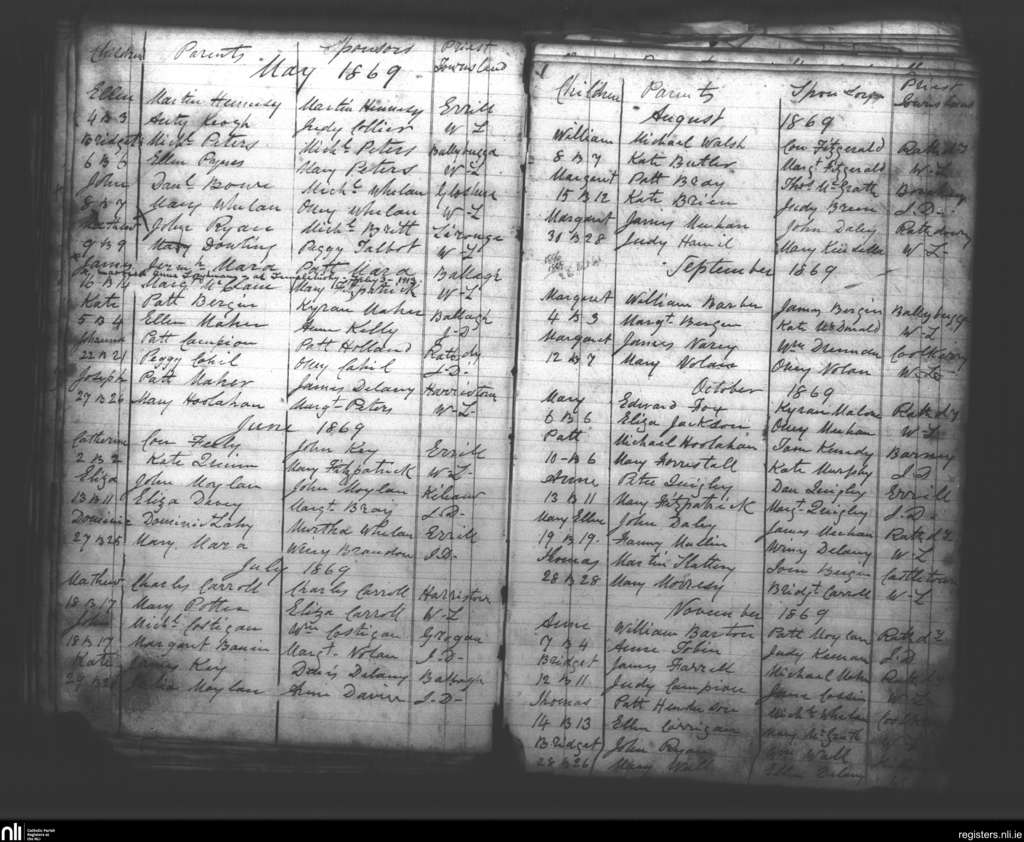 Children Parents Sponsors Priest
Townsland
May 1869
Ellen Martin Hennesy Martin Hennesy Errill
4 B 3 Anty Keogh Judy Collier W-L
Bridget Michl. Peters Michl. Peters Ballybugga
6 B 6 Ellen Mary Peters W-L
John Danl. Bowe Michl. Whelan
8 B 7 Mary Whelan Whelan W-L
Mathew John Ryan Michl. Britt
9 B 9 Mary Dowling Peggy Talbot W-L
James Mara Patt Mara Ballagh
16 B 16 Margt. W-L
Kate Patt Bergin Kyran Maher Ballagh
5 B 4 Ellen Maher Anne Kelly J-D
Johanna Patt Campion Patt Holland Rathdy
22 B 21 Peggy Cahil Cahil J-D-
Joseph Patt Maher James Delany Harristown
27 B 26 Mary Hoolahan Margt. Peters W-L-
June 1869
Catherine Con John Key Errill
2 B 2 Kate Quinn Mary Fitzpatrick W-L
Eliza John Moylan John Moylan
13 B 11 Eliza Margt. Bray J-D-
Dominic Dominic Lahy Martha Whelan Errill
27 B 25 Mary Mara J.D-
July 1869
Mathew Charles Carroll Charles Carroll Harristown
18 B 17 Mary Potter Eliza Carroll W-L
John Michl. Costigan Wm Costigan Grogan
18 B 17 Margaret Margt. Nolan J-D-
Kate James Key Denis Delany Ballagh
Moylan Anne J-D-
Children Parents Sponsors Priest
August 1869
William Michael Walsh Con Fitzgerald Rathdy
8 B 7 Kate Butler Margt. Fitzgerald W-L
Margaret Patt Bray Thos. McGrath
15 B 12 Kate Brien Judy Breen J.D-
Margaret James Meehan John Daley Rathdowny
30 B 28 Judy Mary Kinsella W-L-
September 1869
Margaret William Barber James Bergin Ballybugga
4 B 3 Margt. Bergin Kate McDonald W-L
Margaret James Wm Drennan Coolkerry
12 B 7 Mary Nolan Nolan W-L
October 1869
Mary Edward Fox Kyran Malone Rathdy
6 B 6 Eliza Jackson Meehan W-L
Patt Michael Hoolahan Tom Kennedy Barney
10-B 6 Mary Forrestall Kate Murphy J.D
Anne Peter Quigley Dan Quigley Errill
13 B 11 Mary Fitzpatrick Margt. Quigley J D-
Mary Ellen John Daley James Meehan Rathdy
19 B 19 Fanny Mullin Winny Delany W-L
Thomas Martin Slattery Bergin Castletown
28 B 28 Mary Bridgt. Carroll W-L
November 1869
Anne William Barton Patt Moylan Rathdy
7 B 4 Anne Tobin Judy Keenan J.D
Bridget James Farrell Michael Rathdy
12 B 11 Judy Campion Jane W-L
Thomas Patt Henderson Michl. Whelan
14 B 13 Ellen Corrigan Mary McGrath
Bridget John Ryan Wm Wall
28 B 26 Mary Wall Ellen Delany
nli
Catholic Parish
Registers at
the NLI
registers.nli.ie